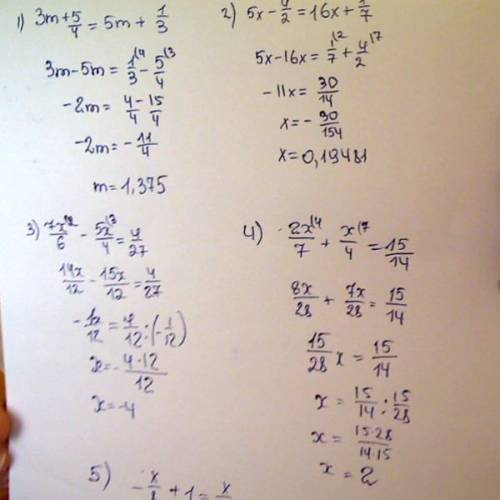 1) 3m + 5/4 = 5m + 1/3
3m - 5m = 1/3 |4 - 5/4 |3
-2m = 4/4 - 15/4
-2m = - 11/4
m = 1,375
2) 5x - 4/2 = 16x + 1/7
5x - 16x = 1/7 |2 + 4/2 |7
-11x = 30/14
x = - 30/154
x = 0,19481
3) 7x/6 |2 - 5x/4 |3 = 4/27
14x/12 - 15x/12 = 4/27
- 1x/12 = 4/12 : (- 1/12)
x = - 4·12/12
x = -4
4) 2x/7 |4 + x/4 |7 = 15/14
8x/28 + 7x/28 = 15/14
15/28 x = 15/14
x = 15/14 : 15/28
x = 15·28/14·15
x = 2
5)